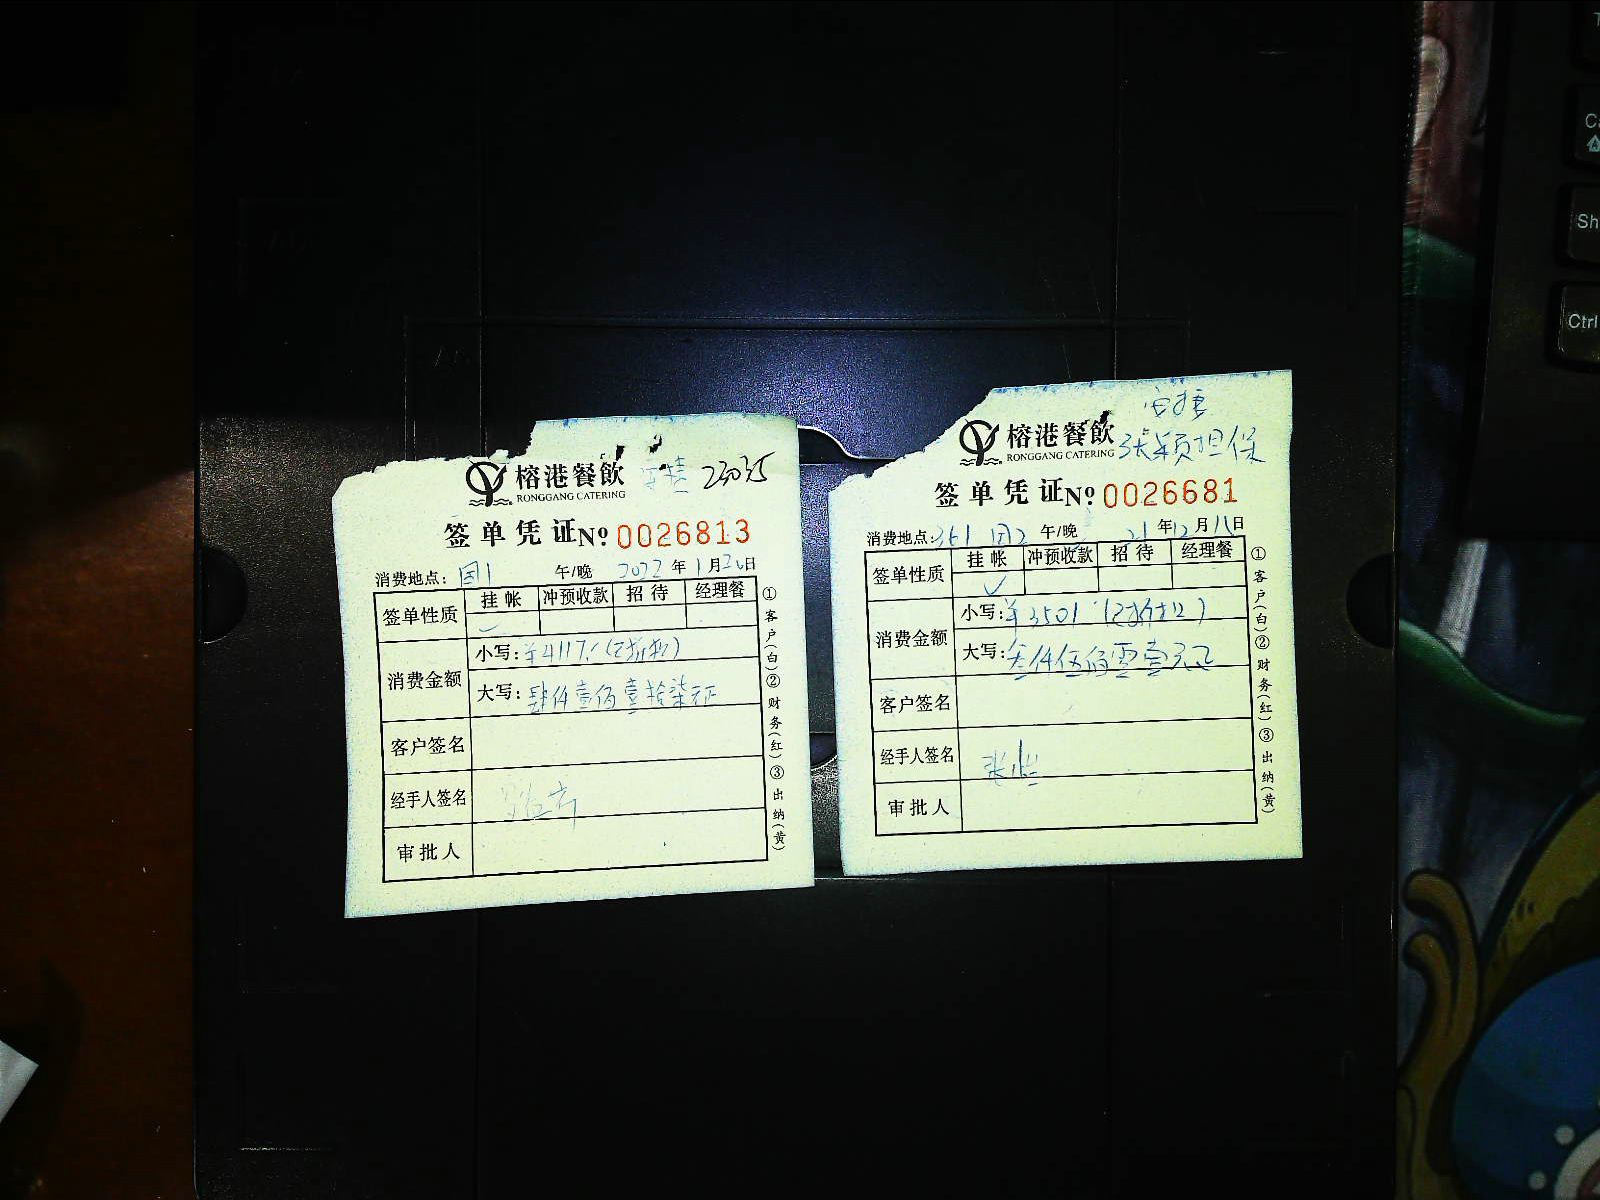 榕港餐飲
RONGGANG CATERING
签单凭证 № 0026813
消费地点: 午/晚 2022 年 1 月 日
签单性质 挂帐 冲预收款 招待 经理餐
✓
消费金额
小写: ¥4117.
大写: 肆仟壹佰壹拾柒元正
客户签名
经手人签名
审批人
①客户(白)②财务(红)③出纳(黄)
榕港餐飲
RONGGANG CATERING
张颖担保
签单凭证 № 0026681
消费地点: 午/晚 21 年 12 月 日
签单性质 挂帐 冲预收款 招待 经理餐
✓
消费金额
小写: ¥3501
大写: 叁仟伍佰零壹元正
客户签名
经手人签名
审批人
①客户(白)②财务(红)③出纳(黄)
Ctrl